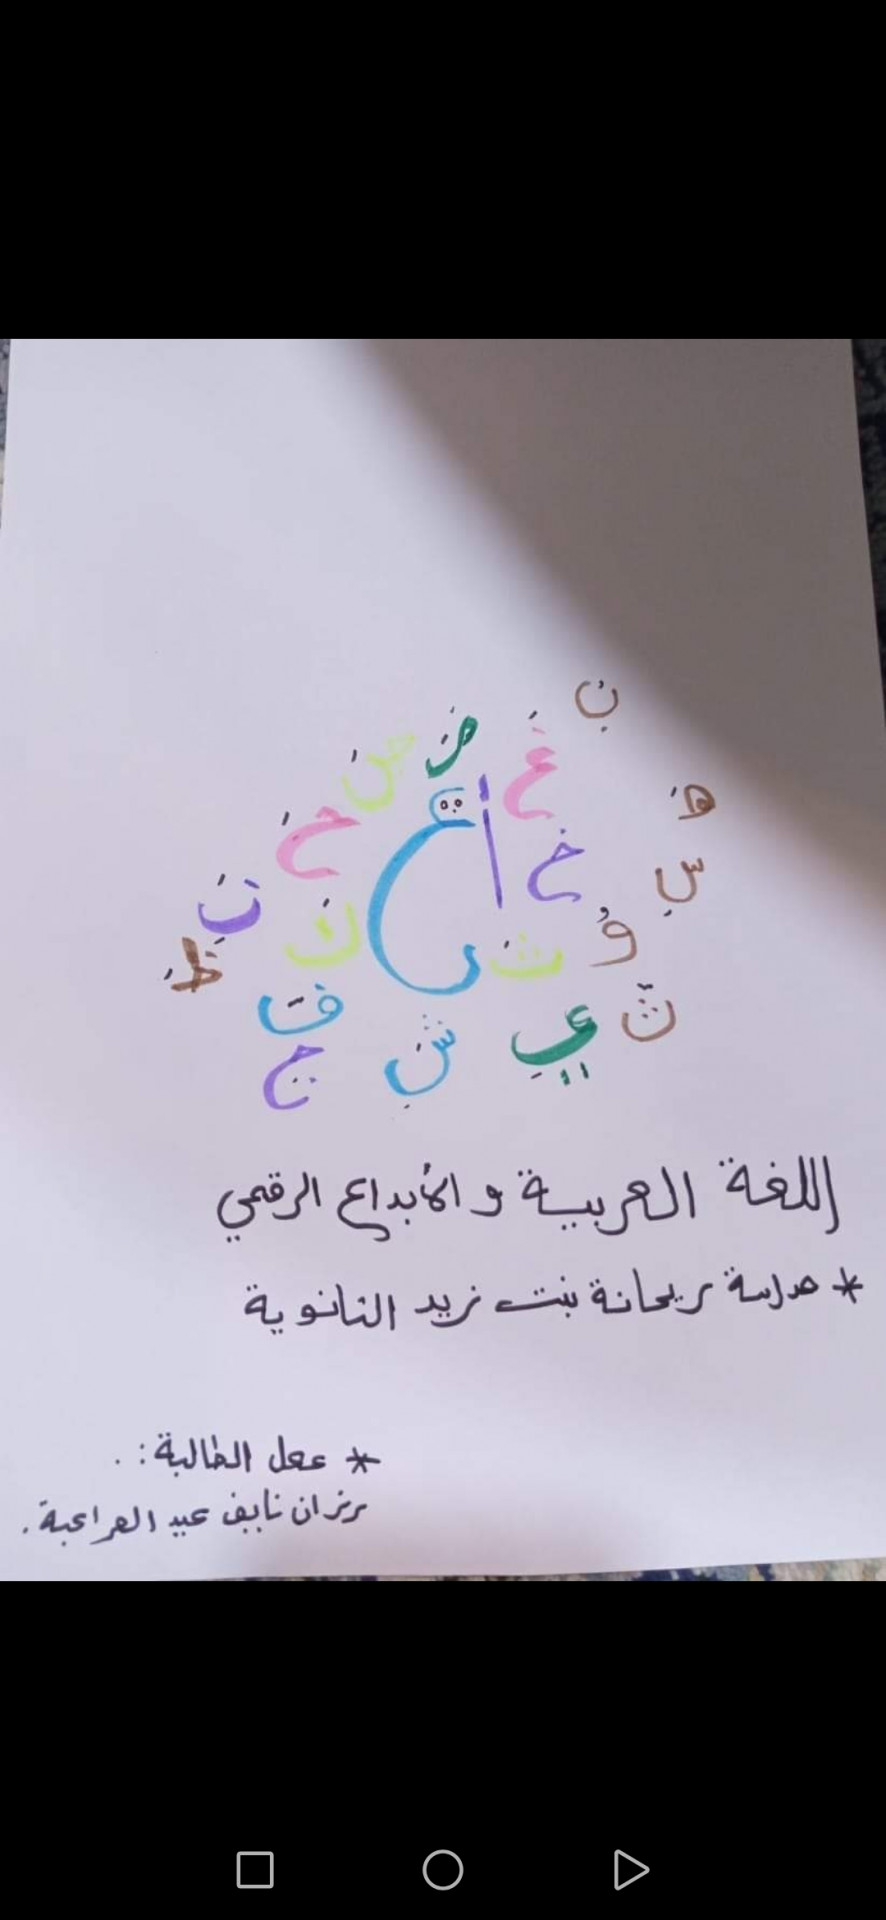 ن
ض
غ
ض
هُ
خ
أ
خ
سِ
ع
ن
ك
ث
وُ
ظ
ف
ي
ث
ج
شِ
اللغة العربية و الأبداع الرقمي
* مدرسة ريحانة بنت زيد الثانوية
* عمل الطالبة : .
نايف عيد المراعبة .